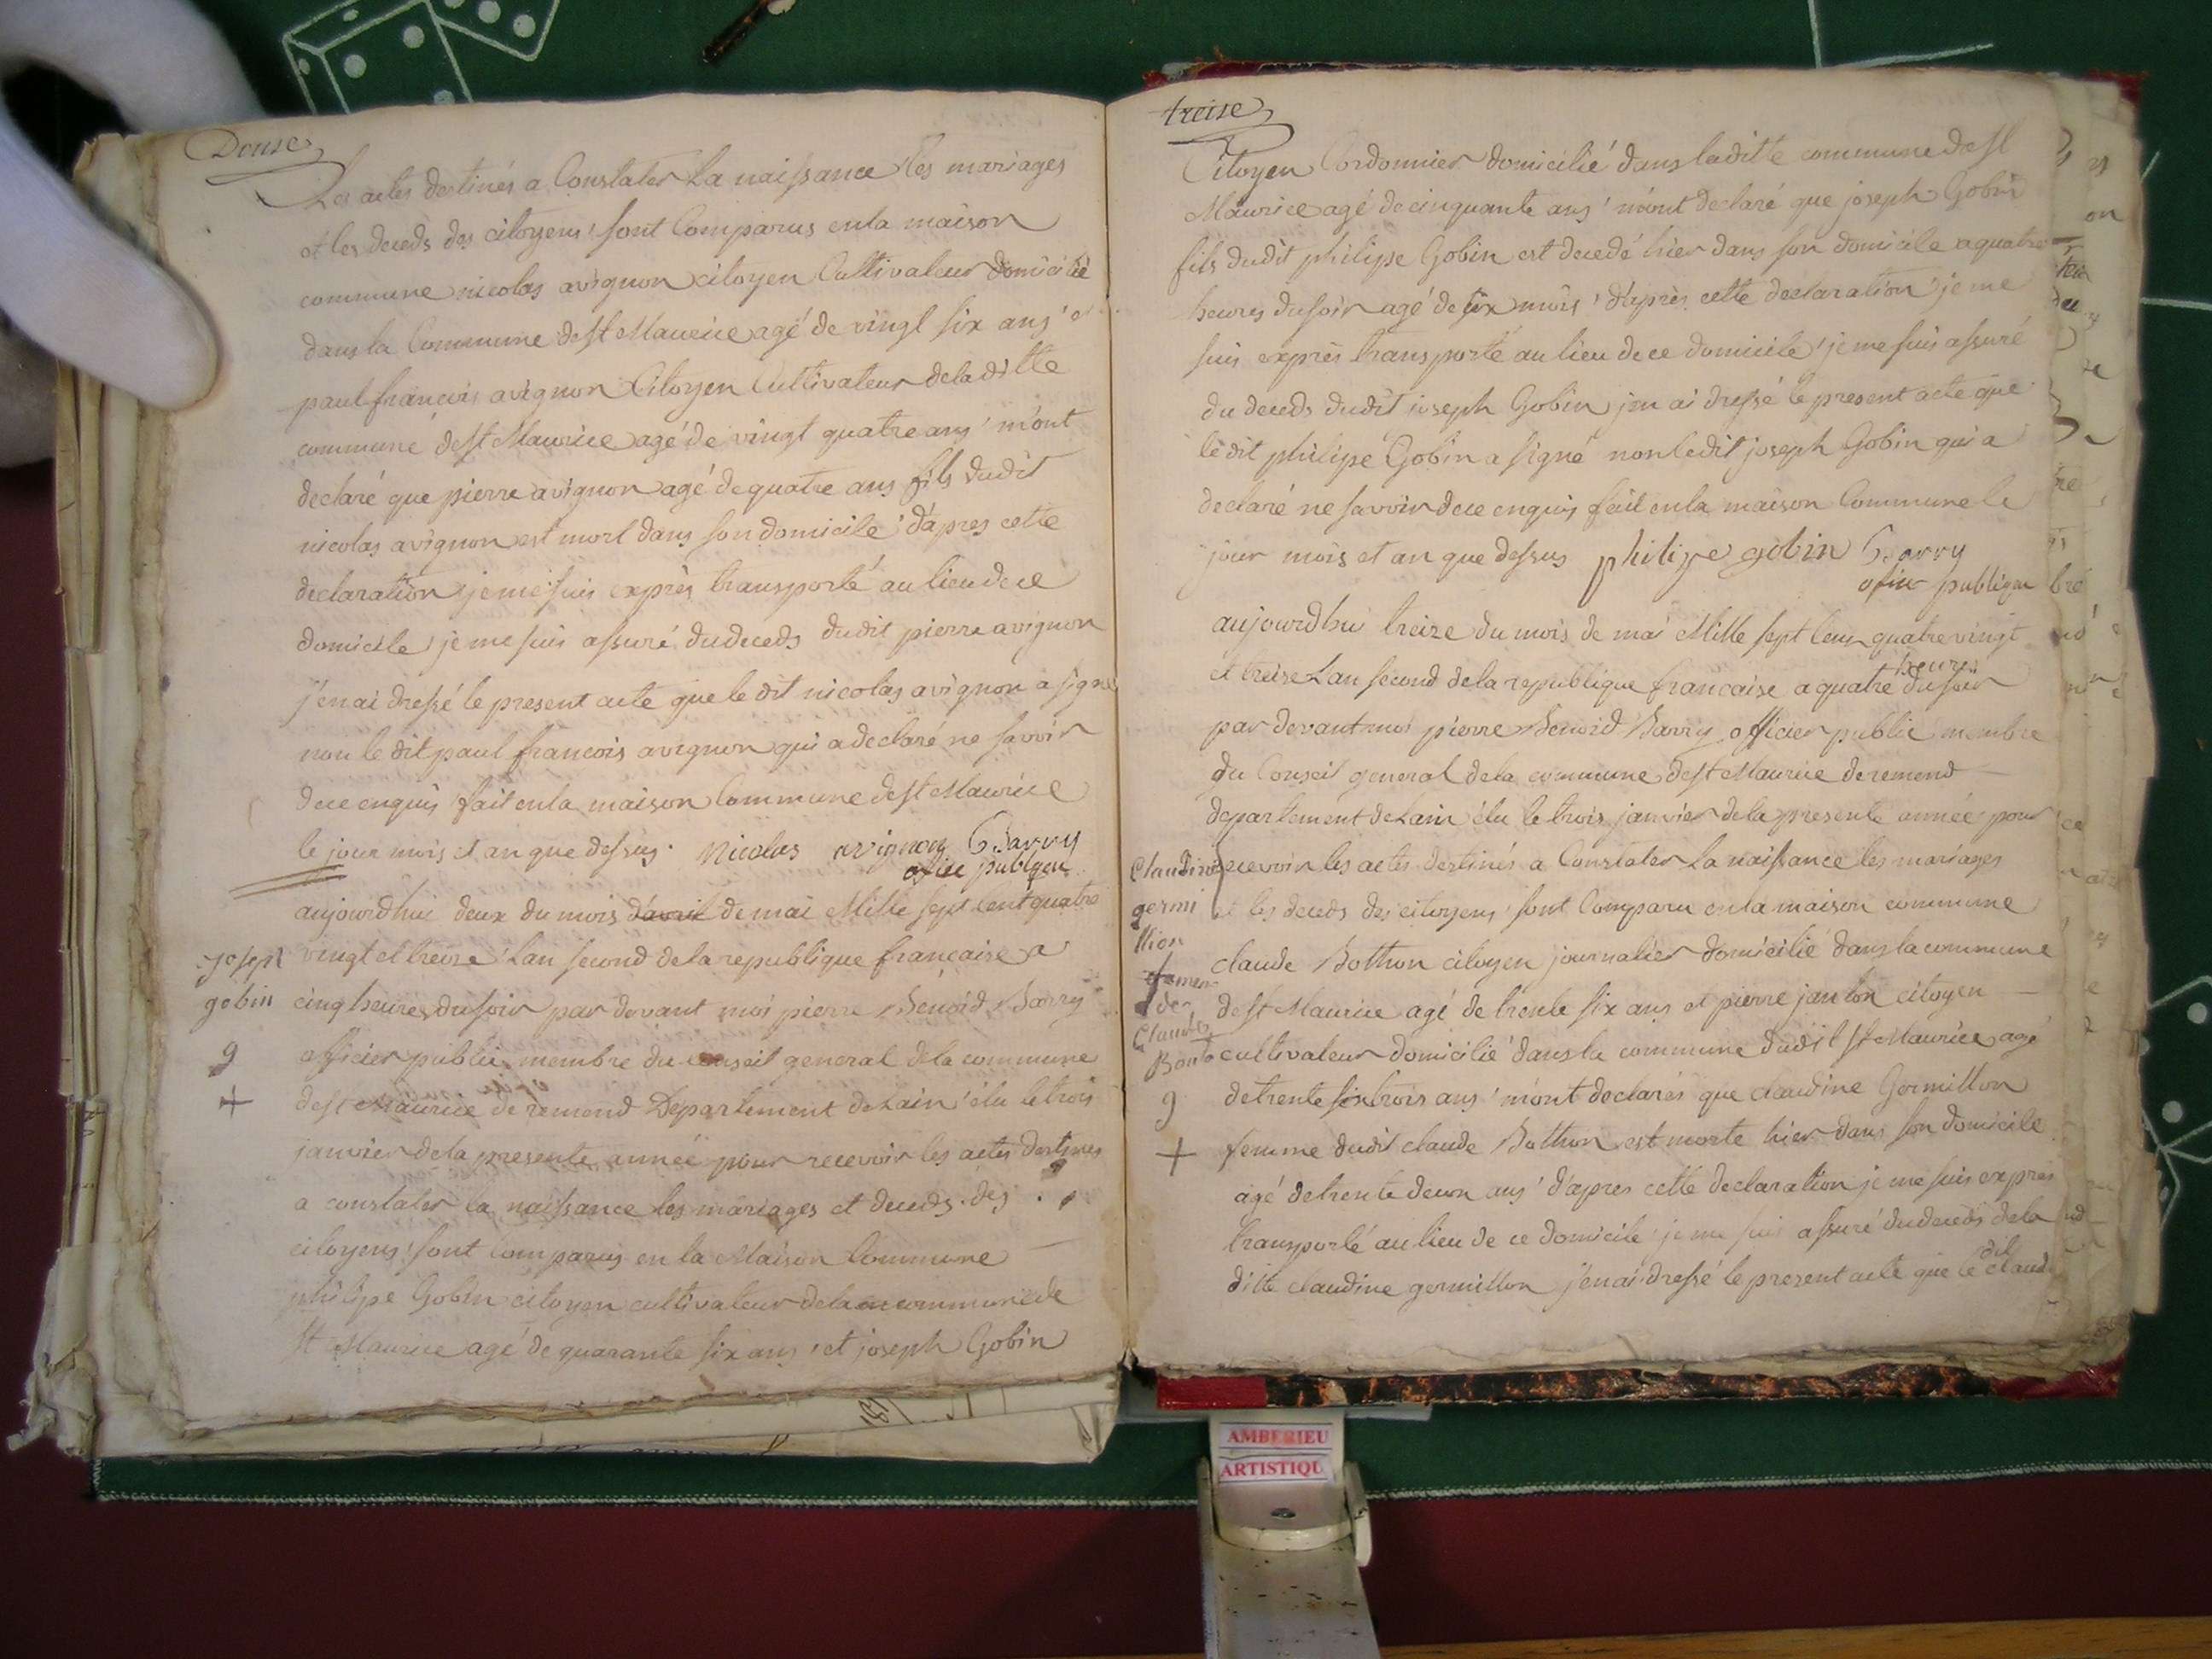 Douse
Les actes destinés a Constater La naissance les mariages
et les deceds des citoyens sont Comparus en la maison
commune nicolas avignon citoyen Cultivateur domicilié
dans la Commune de st Maurice agé de vingt six ans et
paul francois avignon Citoyen Cultivateur de la ditte
commune de st Maurice agé de vingt quatre ans m'ont
declaré que pierre avignon agé de quatre ans fils dudit
nicolas avignon est mort dans son domicile d'apres cette
declaration je me suis exprès transporté au lieu de ce
domicile je me suis assuré du deceds dudit pierre avignon
j'en ai dressé le present acte que le dit nicolas avignon a signé
non le dit paul francois avignon qui a declaré ne savoir
de ce enquis fait en la maison Commune de st Maurice
le jour mois et an que dessus. Nicolas avignon Barry
ofice publque
aujourdhui deux du mois d'avril de mai Mille sept Cent quatre
joseph
gobin
9
+
vingt et treize Lan second de la republique française a
cinq heures du soir par devant moi pierre Benoid Barry
officier public membre du conseil general de la commune
de st Maurice de remend Departement de Lain élu le trois
janvier de la presente année pour recevoir les actes destines
a constater la naissance les mariages et deceds des
citoyens sont Comparus en la Maison Commune
philipe Gobin citoyen cultivateur de la commune de
st Maurice agé de quarante six ans et joseph Gobin
treise
Citoyen Cordonnier domicilié dans laditte commune de st
Maurice agé de cinquante ans m'ont declaré que joseph Gobin
fils dudit philipe Gobin est decedé hier dans son domicile a quatre
heures du soir agé de six mois d'après cette declaration je me
suis exprès transporté au lieu de ce domicile je me suis assuré
du deceds dudit joseph Gobin jen ai dressé le present acte que
le dit philipe Gobin a signé non ledit joseph Gobin qui a
declaré ne savoir de ce enquis fait en la maison Commune le
jour mois et an que dessus philipe gobin Barry
ofice publique
aujourdhui treize du mois de mai Mille sept Cens quatre vingt
et treise Lan second de la republique francaise a quatre heures du soir
par devant moi pierre Benoid Barry officier public membre
du Conseil general de la commune de st Maurice de remend
departement de Lain élu le trois janvier de la presente année pour
recevoir les actes destinés a Constater La naissance les mariages
et les deceds des citoyens sont Comparu en la maison commune
Claudine
germi
llion
femme
de
Claude
Boné
9
+
claude Bothon citoyen journalier domicilié dans la commune
de st Maurice agé de trente six ans et pierre janton citoyen
cultivateur domicilié dans la commune dudit st Maurice agé
de trente six trois ans m'ont declarés que claudine Germillon
femme dudit claude Bothon est morte hier dans son domicile
agé de trente deux ans d'apres cette declaration je me suis exprès
transporté au lieu de ce domicile je me suis assuré du deceds de la
ditte claudine germillon j'en ai dressé le present acte que le dit claud
AMBERIEU
ARTISTIQU